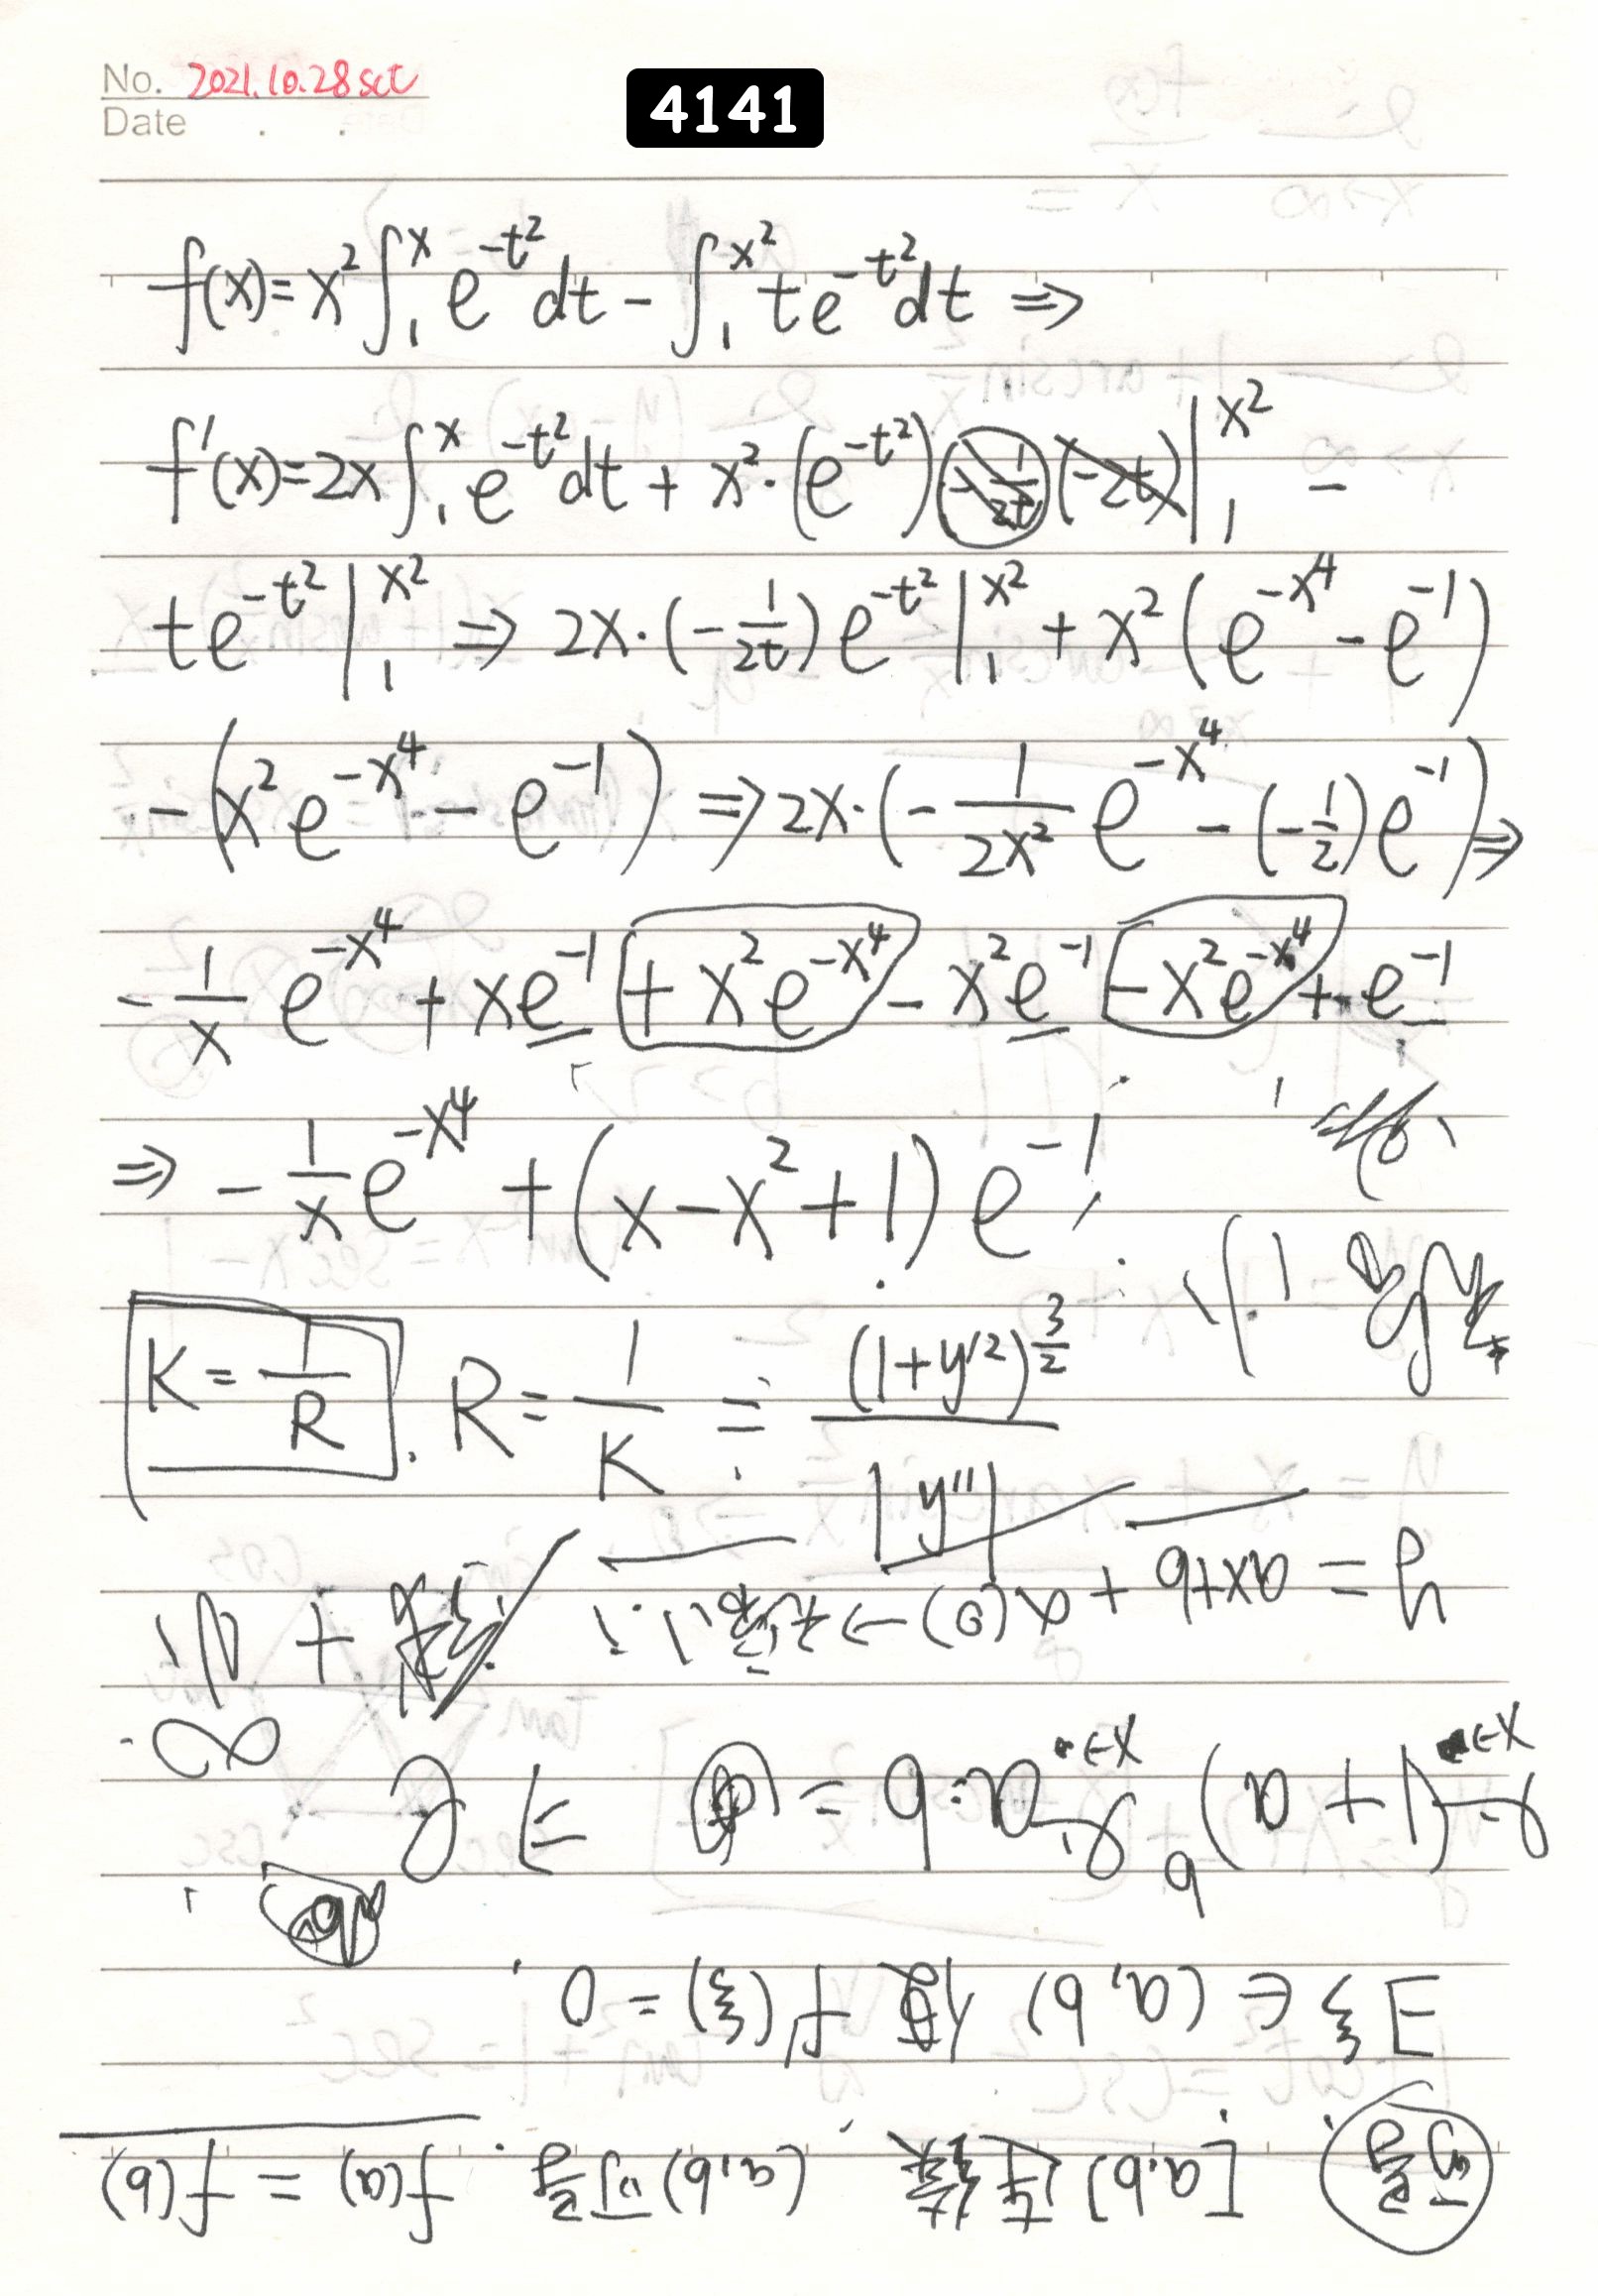 No. 2021.10.28 sct
Date . .
4141
f(x)=x²∫₁ˣ e^{-t²}dt - ∫₁^{x²} te^{-t²}dt ⇒
f'(x)=2x∫₁ˣ e^{-t²}dt + x²·(e^{-t²}) (-1/2t) (-2t)|₁^{x²} -
te^{-t²}|₁^{x²} ⇒ 2x·(-1/2t)e^{-t²}|₁^{x²} + x²(e^{-x⁴}-e^{-1})
-(x²e^{-x⁴}-e^{-1}) ⇒ 2x·(-1/2x² e^{-x⁴} -(-1/2)e^{-1}) ⇒
-1/x e^{-x⁴} + xe^{-1} + x²e^{-x⁴} - x²e^{-1} - x²e^{-x⁴} + e^{-1}
⇒ -1/x e^{-x⁴} + (x-x²+1)e^{-1}
K=1/R . R=1/K = (1+y'²)^{3/2} / |y''|
可导
[a,b]连续 (a,b)可导. f(a) = f(b)
∃ξ∈(a,b) 使 f'(ξ)=0
y = ax+b + α(0) →